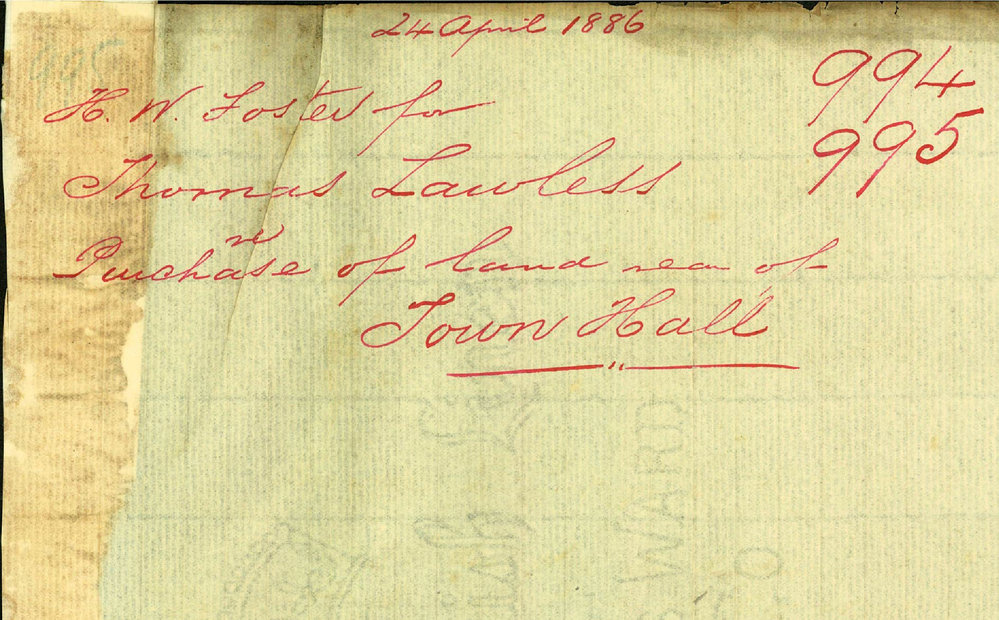 24 April 1886
994
H. W. Foster for
995
Thomas Lawless
re
Purchase of land rear of
Town Hall